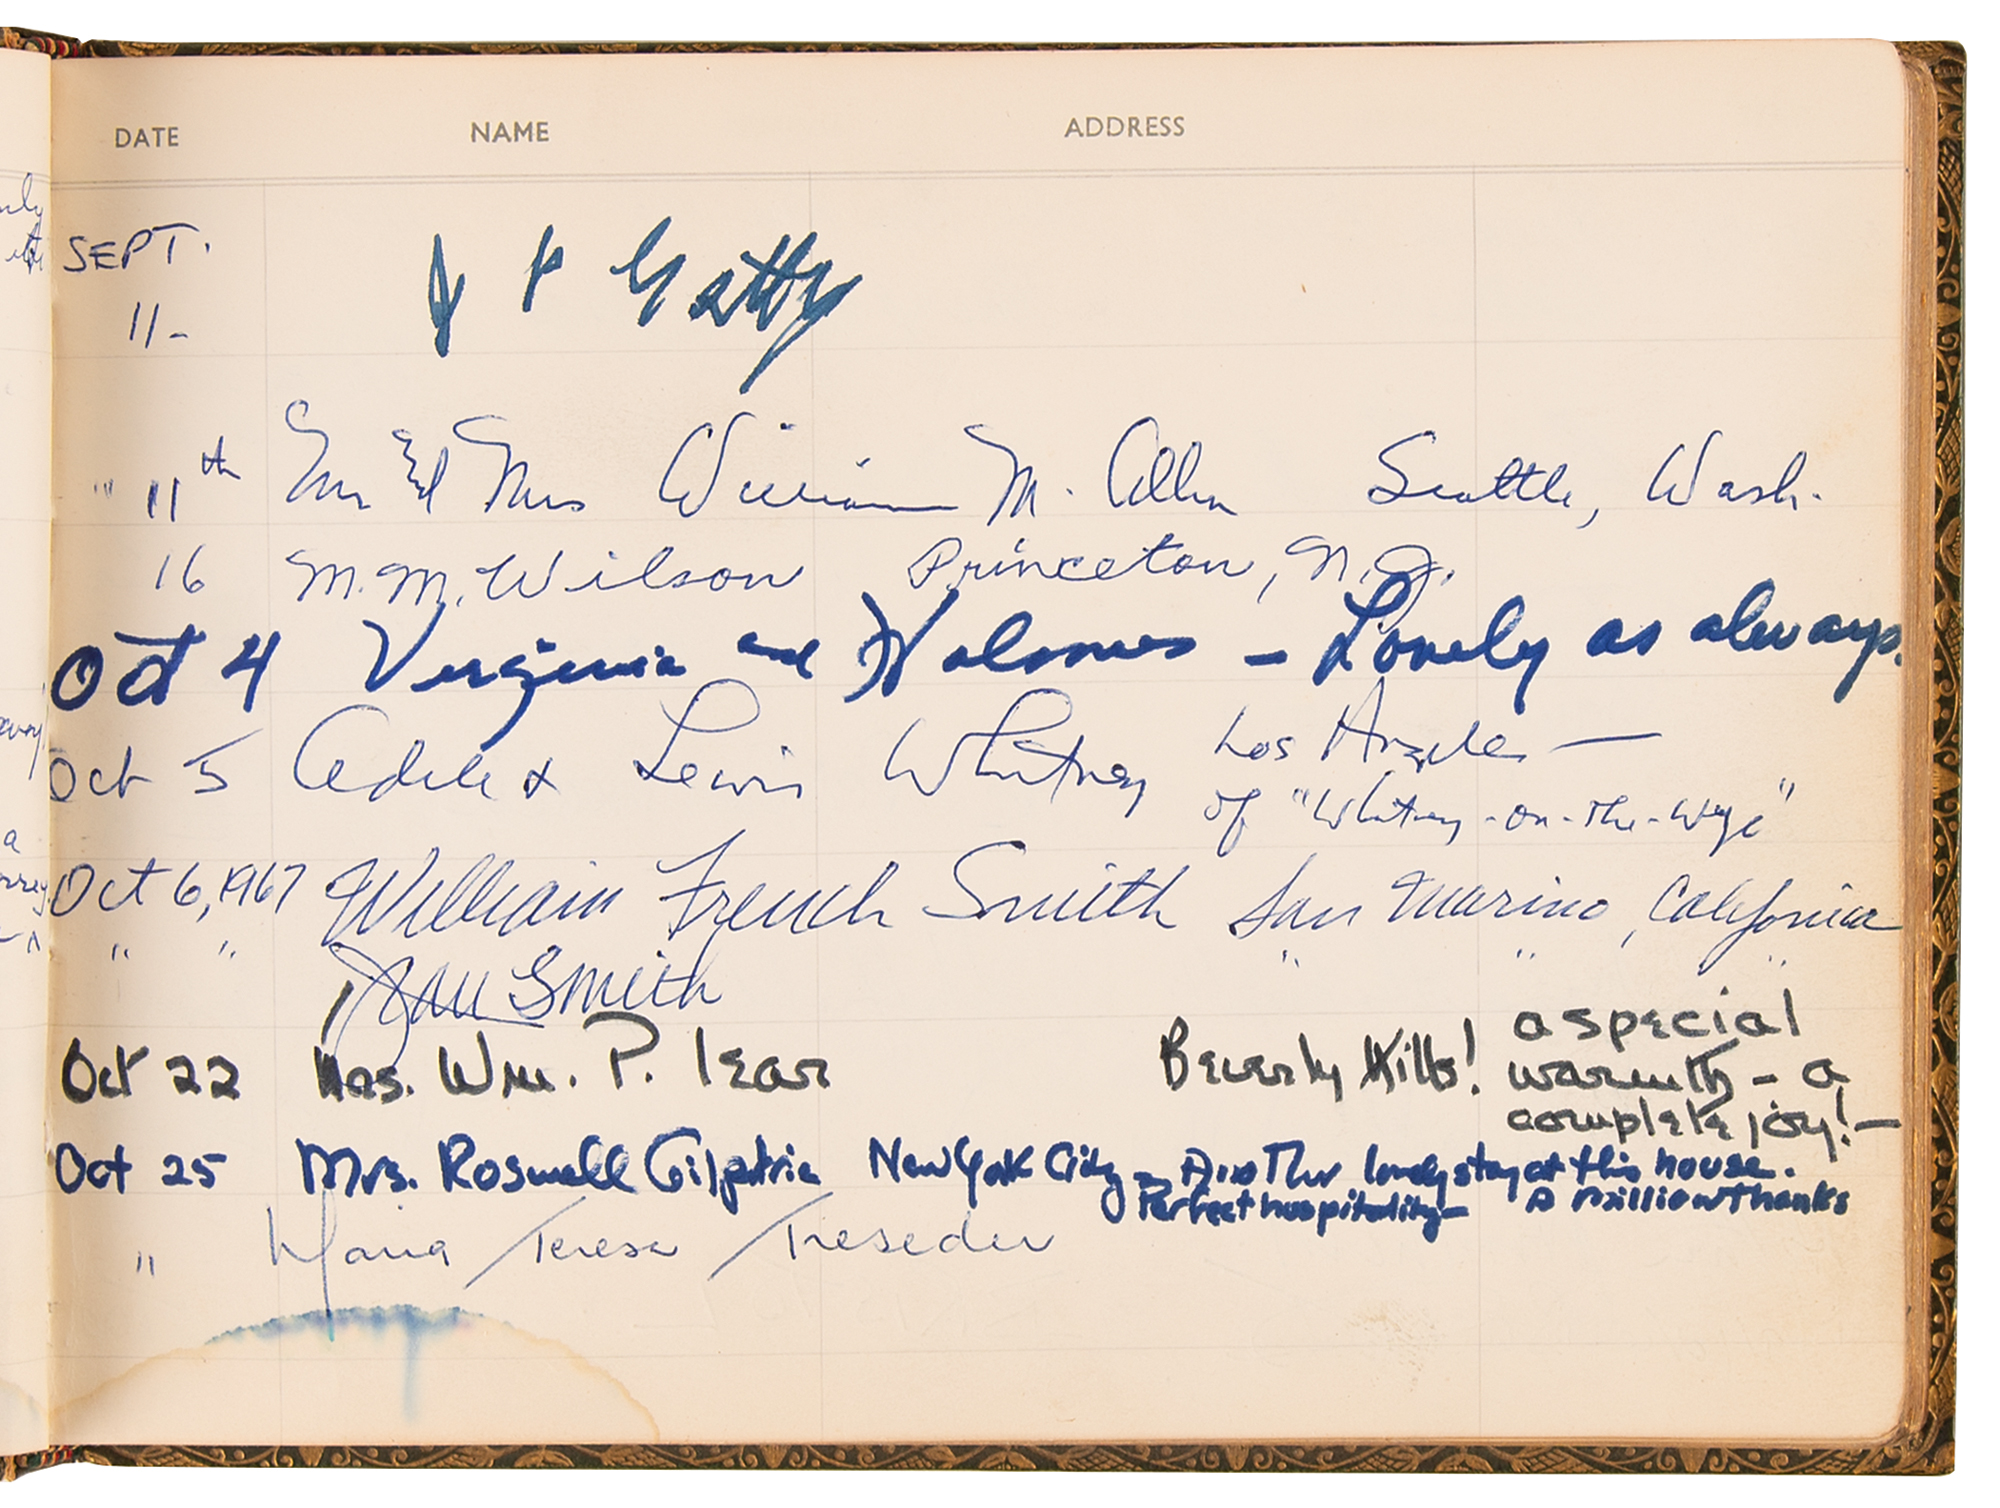 DATE NAME ADDRESS
SEPT. 11- J P Getty
" 11th Mr and Mrs William M. Allen Seattle, Wash.
16 M. M. Wilson Princeton, N. J.
Oct 4 Virginia and Holmes - Lovely as always.
Oct 5 Adele & Lewis Whitney Los Angeles —
of "Whitney-on-the-Wye"
Oct 6, 1967 William French Smith San Marino, California
" " Jean Smith " " "
Oct 22 Mrs. Wm. P. Lear Beverly Hills! a special
warmth - a
complete joy! -
Oct 25 Mrs. Roswell Gilpatric New York City - Another lovely stay at this house.
Perfect hospitality - A million thanks
" Maria Teresa Treseder